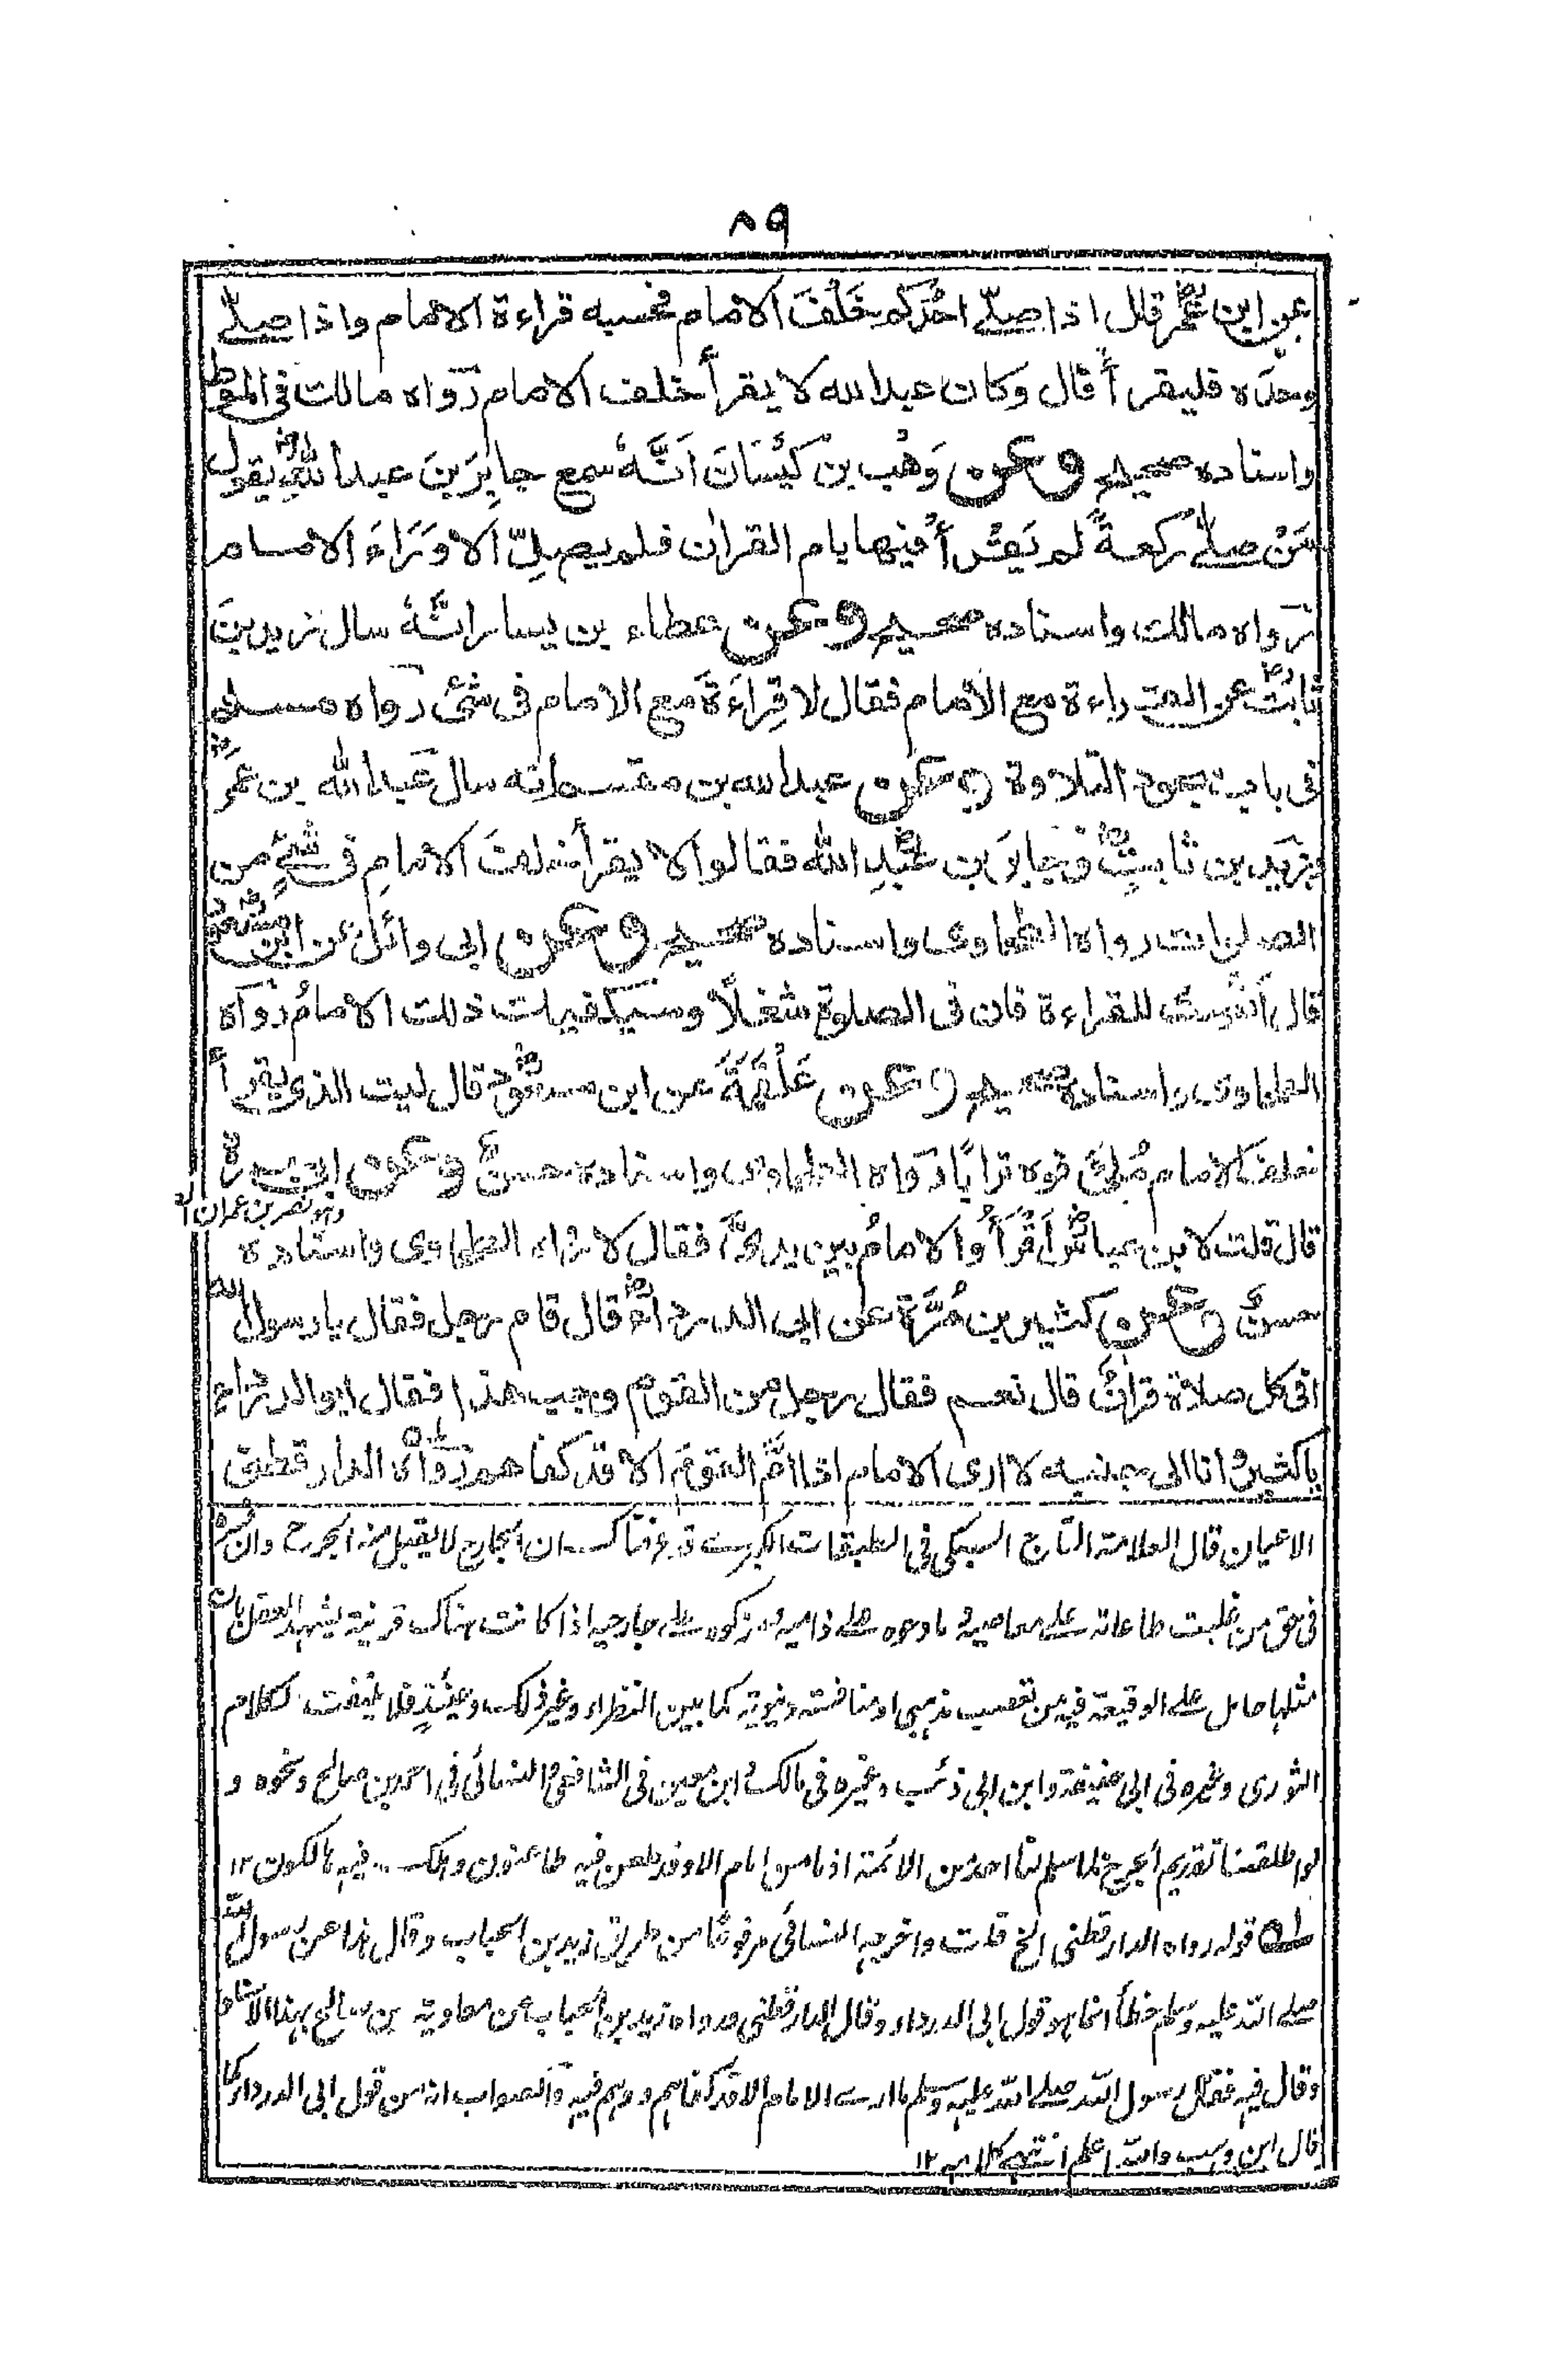 ٨٩
عن ابن عمر رض قال اذا صلے احدكم خَلْفَ الامام فحسبه قراءة الامام واذا صلے
وحدَه فليقرأ قال وكان عبد الله لا يقرأ خلف الامام رَوَاه مالك فى الموطا
واسناده صحيح وعن وَهْب بن كَيْسَانَ اَنَّهٗ سمع جابِرَ بنَ عبد الله رض يقول
مَنْ صلے ركعةً لم يَقْرأْ فيها بام القران فلم يصلِّ الا وَرَاءَ الامام
رَواه مالك واسناده صحيح وعن عطاء بن يسار انَّهٗ سال زيد بنَ
ثابت رض عن القراءة مع الامام فقال لا قِراءَةَ مع الامام فى شئ رواه مسلم
فى باب سجود التلاوة وعن عبد الله بن مقسم انه سال عَبد الله بن عمر رض
وزيد بن ثابتٍ رض وَجابرَ بن عَبْدِ الله رض فقالوا لا يقرأ خلفَ الامامِ فى شئٍ من
الصلوات رواه الطحاوى واسناده صحيح وعن ابى وائل عن ابن مسعود رض
قال اَنْصِتْ للقراءة فان فى الصلوة شغلًا وسَيكفيك ذلك الامامُ رَوَاه
الطحاوى واسناده صحيح وعن عَلْقَمَةَ عن ابن مسعود رض قال ليت الذى يقرأ
خلف الامام مُلِئَ فوه ترابًا رَوَاه الطحاوى واسناده حسنٌ وعن ابى جمرة
وهو نصر بن عمران
قال قلت لابن عباس رض اَقْرَأُ والامامُ بين يدىَّ فقال لا رواه الطحاوى واسناده
حسنٌ وعن كثير بن مُرَّةَ عن ابى الدرداء رض قال قام رجل فقال يا رسول الله
افى كل صلاة قران قال نعم فقال رجل من القوم وجب هذا فقال ابو الدرداء
يا كثير وانا الى جنبه لا ارى الامام اذا امَّ القومَ الا قد كفاهم رَوَاهُ الدارقطنى
الاعيان قال العلامة التاج السبكى فى الطبقات الكبرے قد عرفناك ان الجارح لا يقبل منه الجرح وان فسره
فى حق من غلبت طاعاته على معاصيه ومادحوه على ذاميه ومزكوه على جارحيه اذا كانت هناك قرينة يشهد العقل بان
مثلها حامل على الوقيعة فيه من تعصب مذهبى او منافسة دنيوية كما بين النظراء وغير ذلك وحينئذٍ فلا يلتفت لكلام
الثورى وغيره فى ابى حنيفة وابن ابى ذئب وغيره فى مالك وابن معين فى الشافعى والنسائى فى احمد بن صالح ونحوه و
لو اطلقنا تقديم الجرح لما سلم لنا احد من الائمة اذ ما من امام الا وقد طعن فيه طاعنون وهلك فيه هالكون ١٢
لـه قوله رواه الدارقطنى الخ قلت واخرجه النسائى مرفوعًا من طريق زيد بن الحباب وقال هذا عن رسول الله
صلے الله عليه وسلم خطأ انما هو قول ابى الدرداء وقال الدارقطنى ورواه زيد بن الحباب عن معاوية بن صالح بهذا الاسناد
وقال فيه فقال رسول الله صلے الله عليه وسلم ما ارے الامام الا قد كفاهم ووهم فيه والصواب انه من قول ابى الدرداء كما
قال ابن وهب والله اعلم انتهى كلامه ١٢